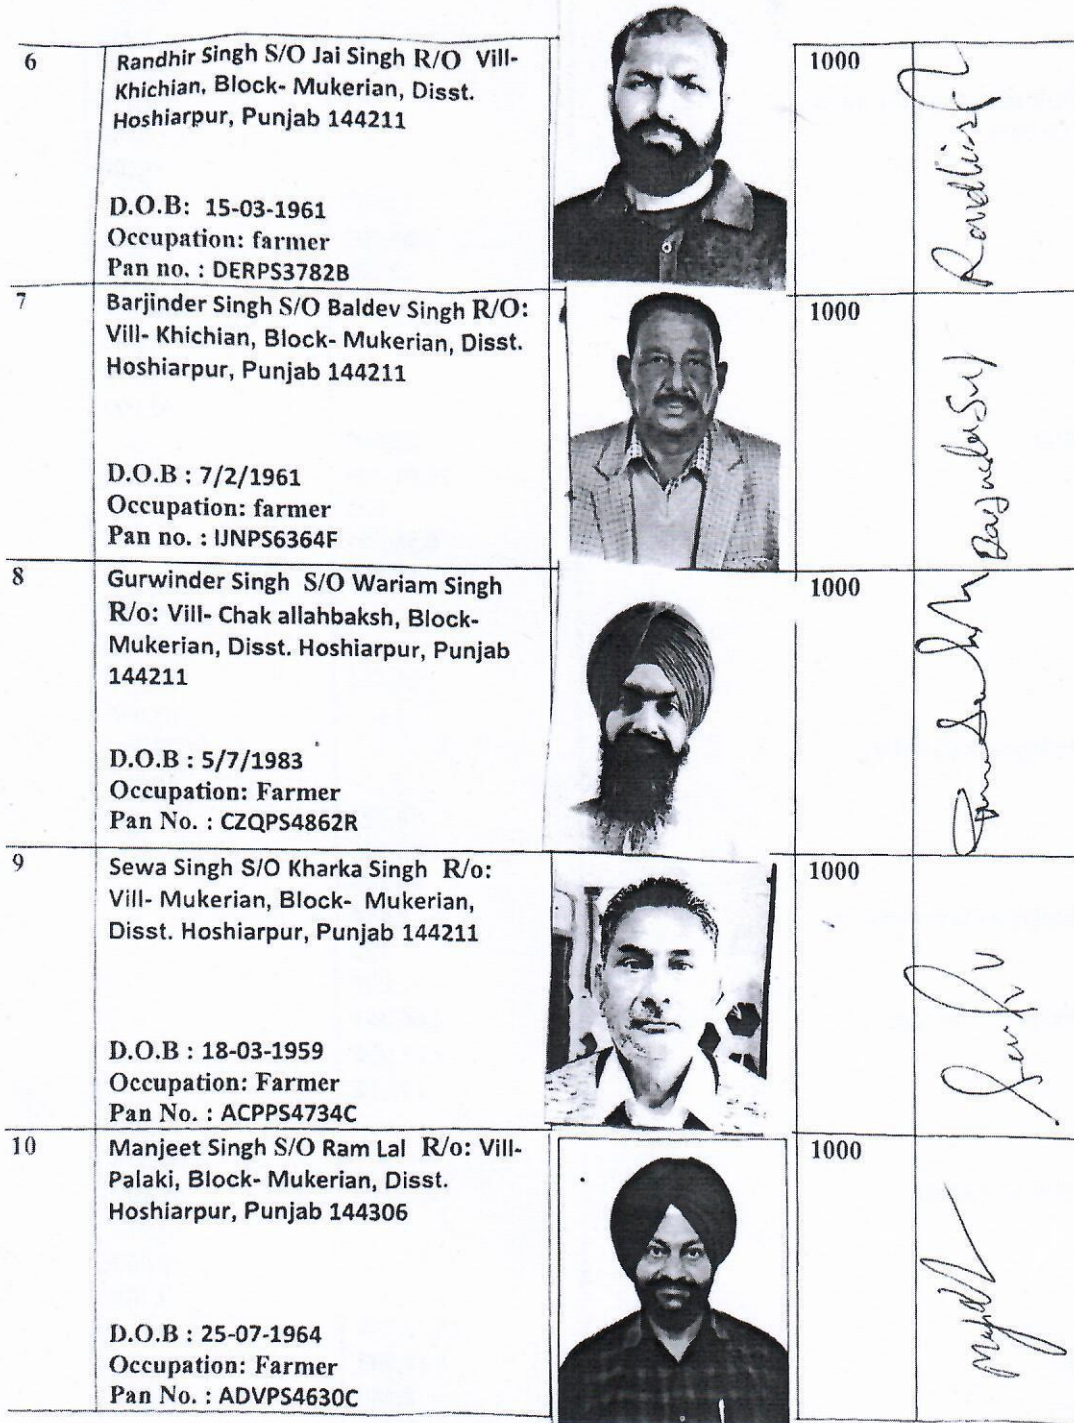 6
Randhir Singh S/O Jai Singh R/O Vill-
Khichian, Block- Mukerian, Disst.
Hoshiarpur, Punjab 144211
D.O.B: 15-03-1961
Occupation: farmer
Pan no. : DERPS3782B
1000
7
Barjinder Singh S/O Baldev Singh R/O:
Vill- Khichian, Block- Mukerian, Disst.
Hoshiarpur, Punjab 144211
D.O.B : 7/2/1961
Occupation: farmer
Pan no. : IJNPS6364F
1000
8
Gurwinder Singh S/O Wariam Singh
R/o: Vill- Chak allahbaksh, Block-
Mukerian, Disst. Hoshiarpur, Punjab
144211
D.O.B : 5/7/1983
Occupation: Farmer
Pan No. : CZQPS4862R
1000
9
Sewa Singh S/O Kharka Singh R/o:
Vill- Mukerian, Block- Mukerian,
Disst. Hoshiarpur, Punjab 144211
D.O.B : 18-03-1959
Occupation: Farmer
Pan No. : ACPPS4734C
1000
10
Manjeet Singh S/O Ram Lal R/o: Vill-
Palaki, Block- Mukerian, Disst.
Hoshiarpur, Punjab 144306
D.O.B : 25-07-1964
Occupation: Farmer
Pan No. : ADVPS4630C
1000